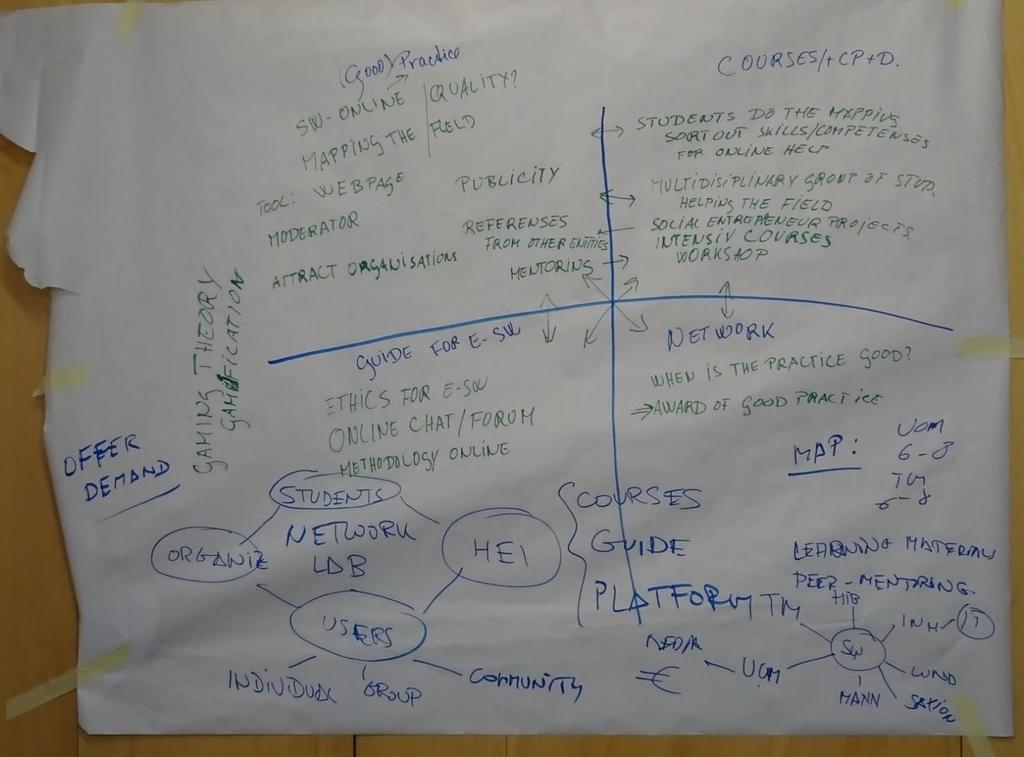 (GOOD) Practice
SW-ONLINE QUALITY?
MAPPING THE FIELD
TOOL: WEBPAGE
PUBLICITY
MODERATOR
REFERENSES
FROM OTHER ENTITIES
ATTRACT ORGANISATIONS
MENTORING
COURSES/+CP+D.
STUDENTS DO THE MAPPING
SORT OUT SKILLS/COMPETENSES
FOR ONLINE HELP
MULTIDISIPLINARY GROUP OF STUD.
HELPING THE FIELD
SOCIAL ENTREPENEUR PROJECTS
INTENSIV COURSES
WORKSHOP
GAMING THEORY
GAMIFICATION
GUIDE FOR E-SW
ETHICS FOR E-SW
ONLINE CHAT/FORUM
METHODOLOGY ONLINE
NETWORK
WHEN IS THE PRACTICE GOOD?
⇒AWARD OF GOOD PRACTICE
OFFER
DEMAND
STUDENTS
ORGANIZ
NETWORK
LAB
HEI
USERS
INDIVIDUAL
GROUP
COMMUNITY
COURSES
GUIDE
PLATFORM
MAP:
UOM
6-8
TM
6-8
LEARNING MATERIAL
PEER-MENTORING
TM
HIB
INH
IT
SW
LUND
MANN
UCM
€